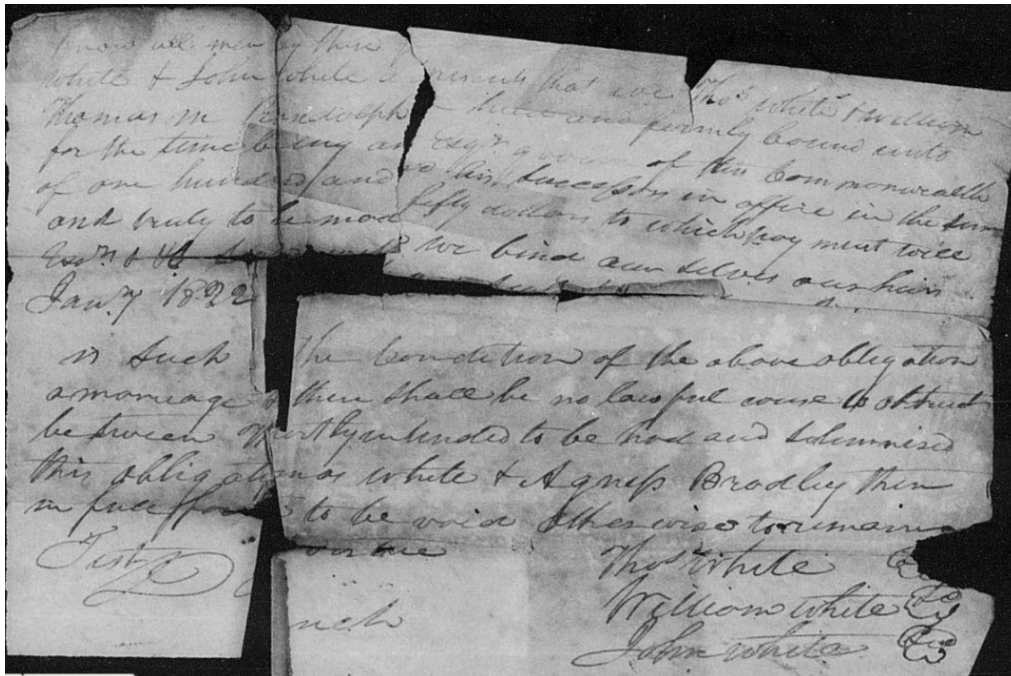 Know all men by these presents that we Thos White & William
White & John White are held and firmly bound unto
Thomas M Randolph Esqr governor of this Commonwealth
for the time being and his successors in office in the sum
of one hundred and fifty dollars to which payment will
and truly to be mad We bind our selves our heirs
Esqr &
Jany 1822
The Condition of the above obligation
is Such there shall be no lawful cause to obstruct
a marriage shortly intended to be had and solemnised
between Thomas White & Agness Bradley then
this obligation to be void otherwise to remain
in full force virtue
Test
nch
Thos White
William White
John White